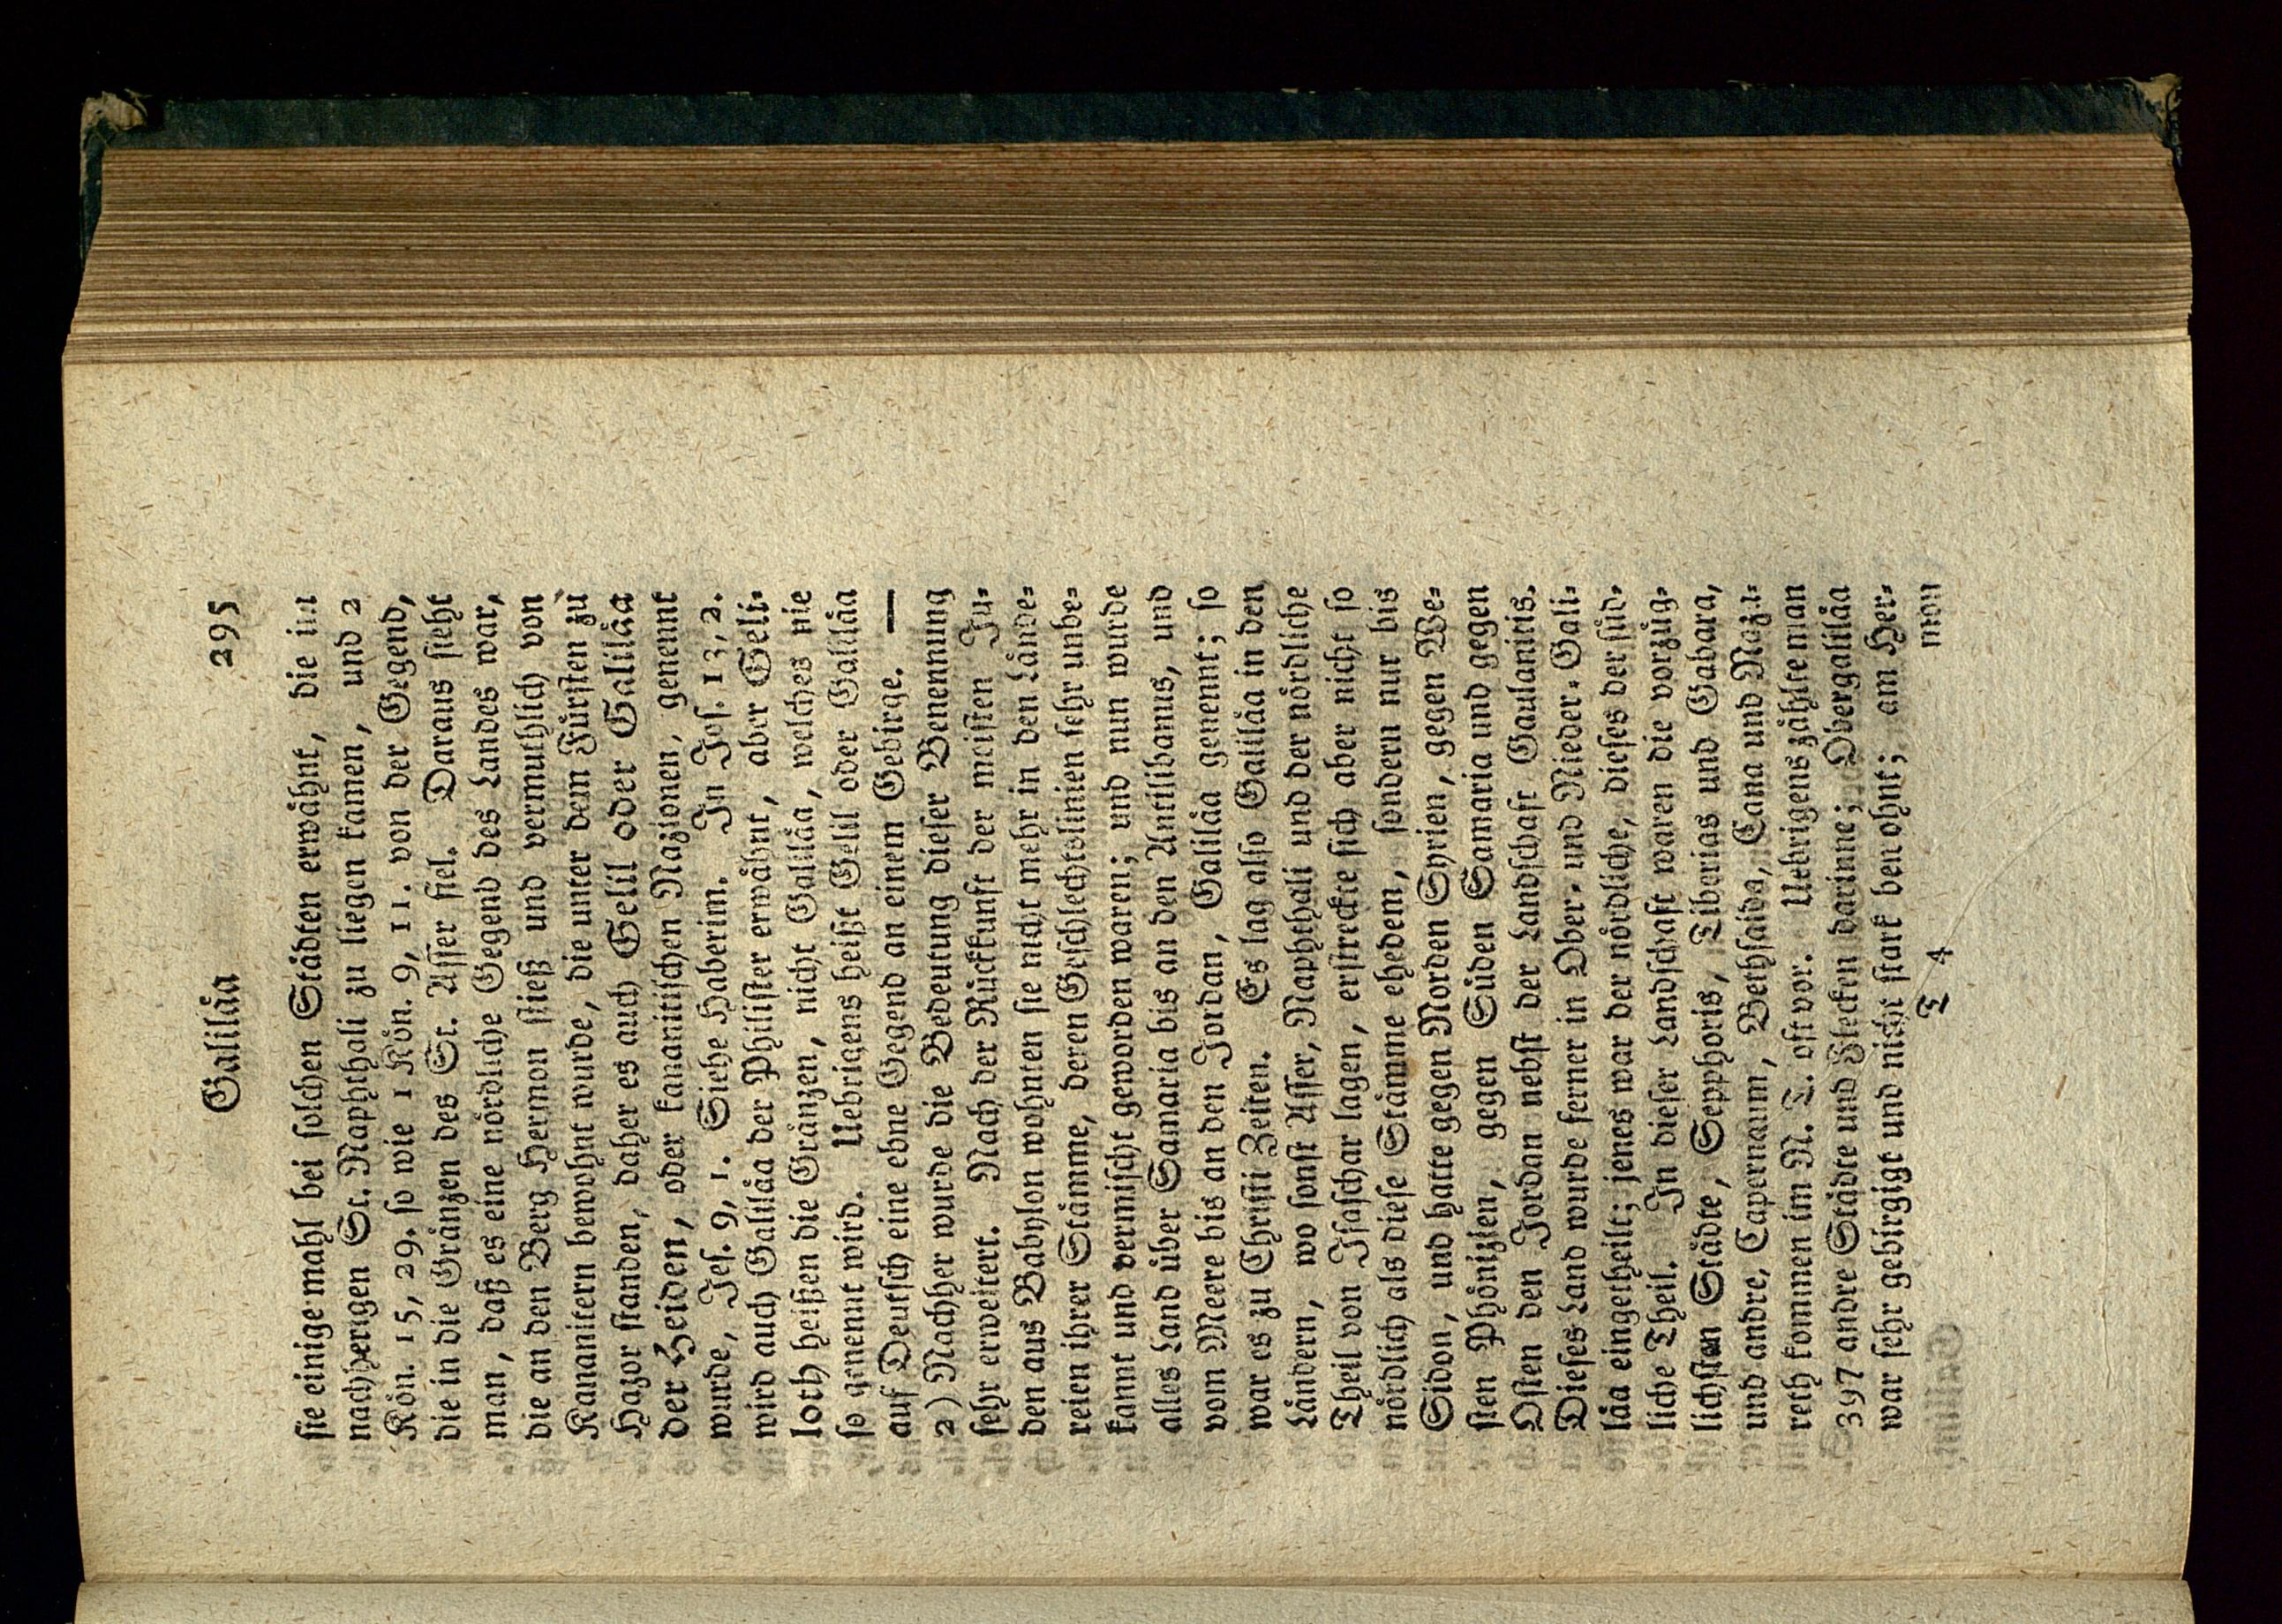 Galiläa 295
sie einige mahl bei solchen Städten erwähnt, die im
nachherigen St. Naphthali zu liegen kamen, und 2
Kön. 15, 29. so wie 1 Kön. 9, 11. von der Gegend,
die in die Gränzen des St. Asser fiel. Daraus sieht
man, daß es eine nördliche Gegend des Landes war,
die an den Berg Hermon stieß und vermuthlich von
Kananitern bewohnt wurde, die unter dem Fürsten zu
Hazor standen, daher es auch Gelil oder Galiläa
der Heiden, oder kananitischen Nazionen, genennt
wurde, Jes. 9, 1. Siehe Haberim. In Jos. 13, 2.
wird auch Galiläa der Philister erwähnt, aber Geli-
loth heißen die Gränzen, nicht Galiläa, welches nie
so genennt wird. Uebrigens heißt Gelil oder Galiläa
auf Deutsch eine ebne Gegend an einem Gebirge. —
2) Nachher wurde die Bedeutung dieser Benennung
sehr erweitert. Nach der Rückkunft der meisten Ju-
den aus Babylon wohnten sie nicht mehr in den Lände-
reien ihrer Stämme, deren Geschlechtslinien sehr unbe-
kannt und vermischt geworden waren; und nun wurde
alles Land über Samaria bis an den Antilibanus, und
vom Meere bis an den Jordan, Galiläa genennt; so
war es zu Christi Zeiten. Es lag also Galiläa in den
Ländern, wo sonst Asser, Naphthali und der nördliche
Theil von Isaschar lagen, erstreckte sich aber nicht so
nördlich als diese Stämme ehedem, sondern nur bis
Sidon, und hatte gegen Norden Syrien, gegen We-
sten Phönizien, gegen Süden Samaria und gegen
Osten den Jordan nebst der Landschaft Gaulanitis.
Dieses Land wurde ferner in Ober- und Nieder-Gali-
läa eingetheilt; jenes war der nördliche, dieses der süd-
liche Theil. In dieser Landschaft waren die vorzüg-
lichsten Städte, Sepphoris, Tiberias und Gabara,
und andre, Capernaum, Bethsaida, Cana und Naza-
reth kommen im N. T. oft vor. Uebrigens zählte man
397 andre Städte und Flecken darinne; Obergaliläa
war sehr gebirgigt und nicht stark benohnt; am Her-
T 4 mon